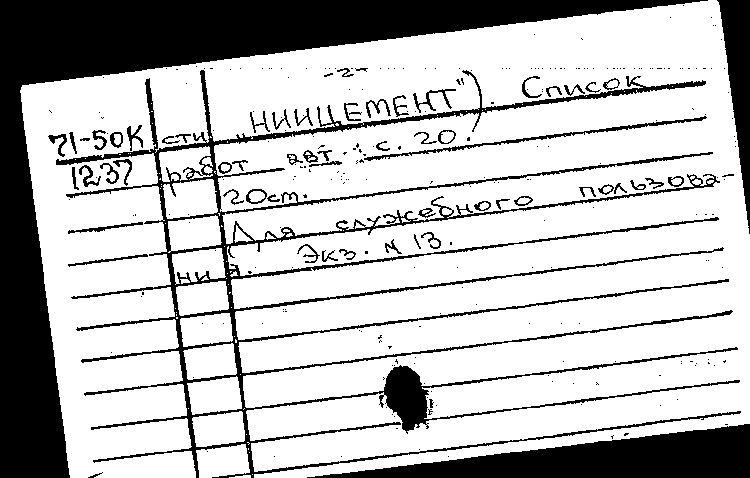 -2-
71-50К сти „НИИЦЕМЕНТ"). Список
1237 работ авт.: с. 20.
20см.
Для служебного пользова-
ния. Экз. N 13.